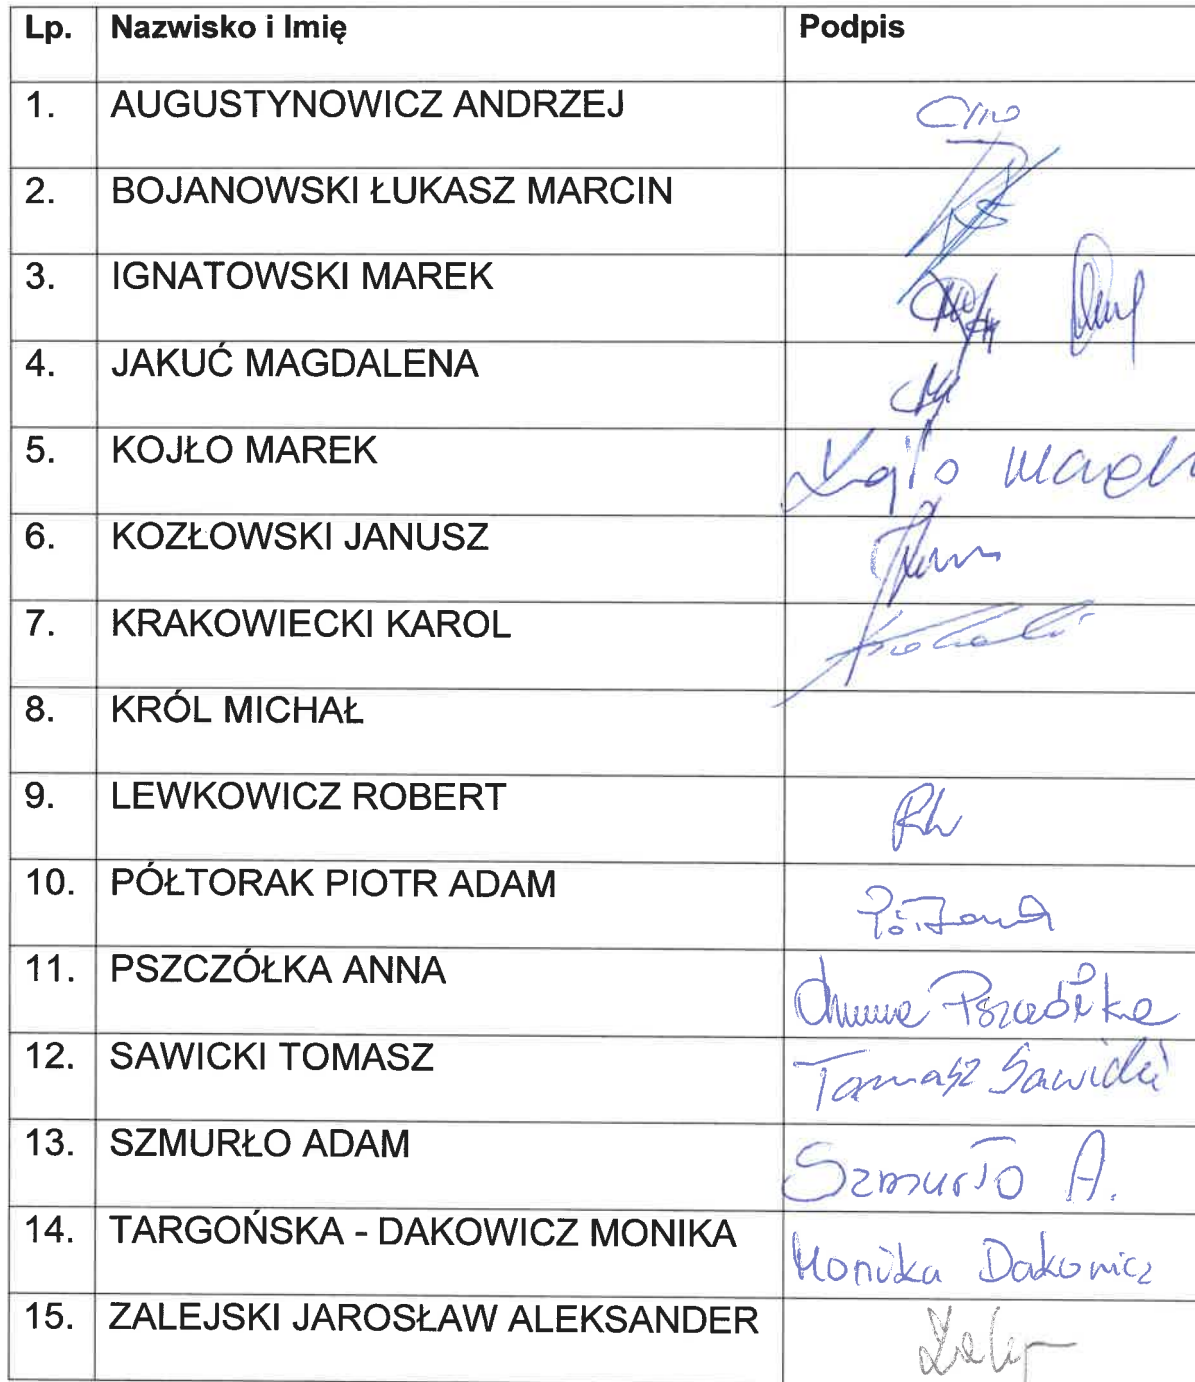 Lp. Nazwisko i Imię Podpis
1. AUGUSTYNOWICZ ANDRZEJ
2. BOJANOWSKI ŁUKASZ MARCIN
3. IGNATOWSKI MAREK
4. JAKUĆ MAGDALENA
5. KOJŁO MAREK Kojło Marek
6. KOZŁOWSKI JANUSZ
7. KRAKOWIECKI KAROL
8. KRÓL MICHAŁ
9. LEWKOWICZ ROBERT
10. PÓŁTORAK PIOTR ADAM
11. PSZCZÓŁKA ANNA Anna Pszczółka
12. SAWICKI TOMASZ Tomasz Sawicki
13. SZMURŁO ADAM Szmurło A.
14. TARGOŃSKA - DAKOWICZ MONIKA Monika Dakowicz
15. ZALEJSKI JAROSŁAW ALEKSANDER